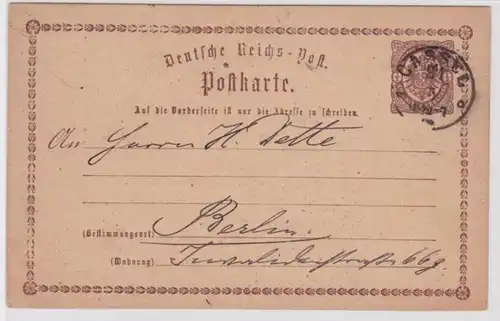 Deutsche Reichs-Post.
Postkarte.
Auf die Vorderseite ist nur die Adresse zu schreiben.
CASSEL
An Herrn H. Dette
(Bestimmungsort) Berlin.
(Wohnung) Invalidenstraße 66g.